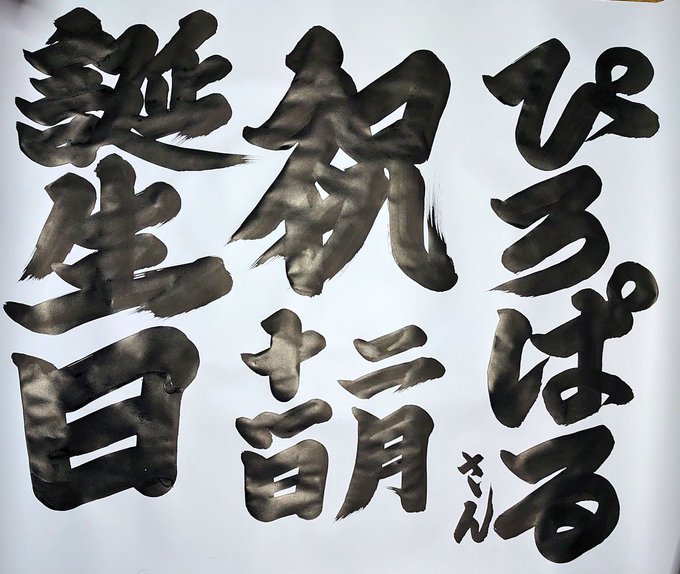 ぴろぱるさん
祝
二月
十一日
誕生日